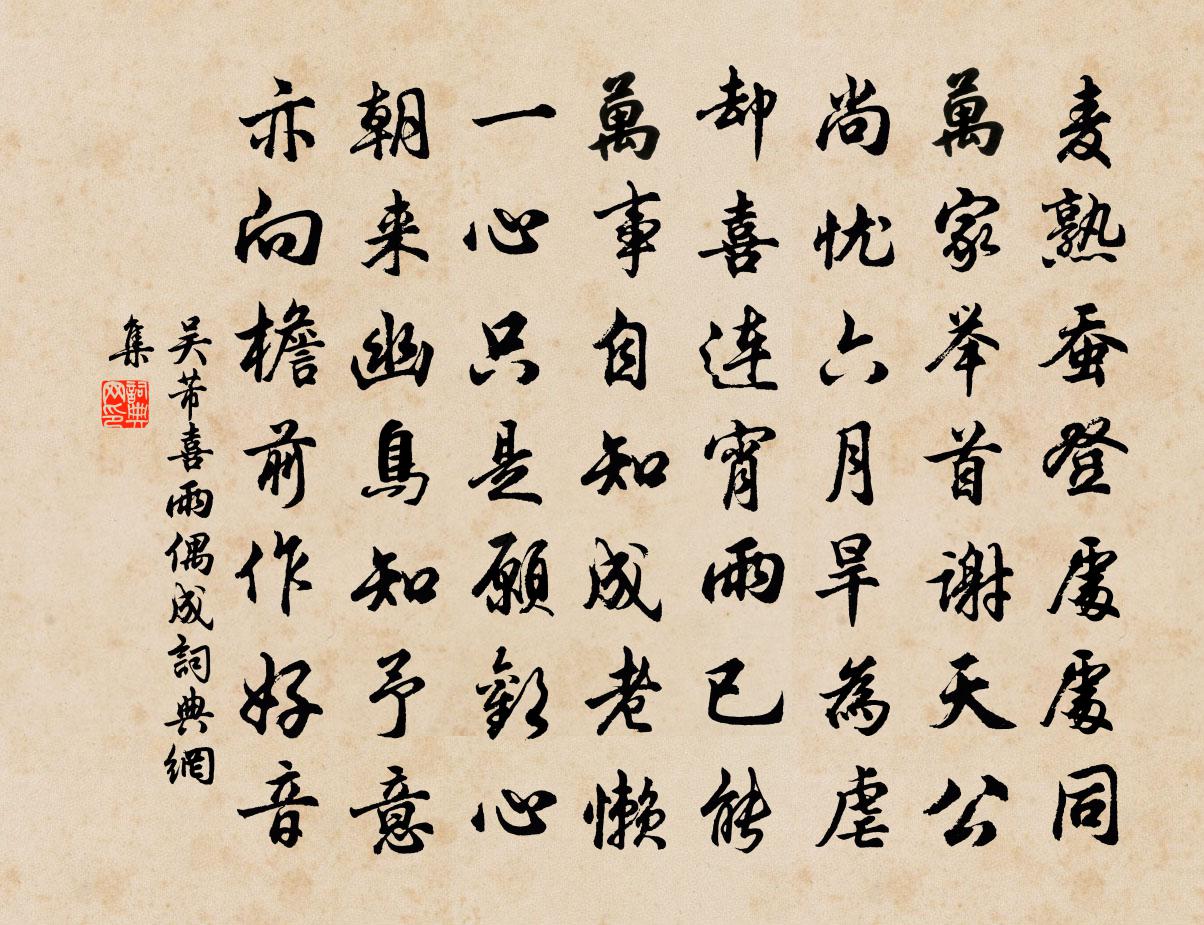 麦熟蚕登處處同
萬家举首謝天公
尚忧六月旱為虐
却喜连宵雨已能
萬事自知成老懒
一心只是願歡心
朝来幽鳥知予意
亦向檐前作好音
吴芾喜雨偶成詞典網
集
詞典
网印